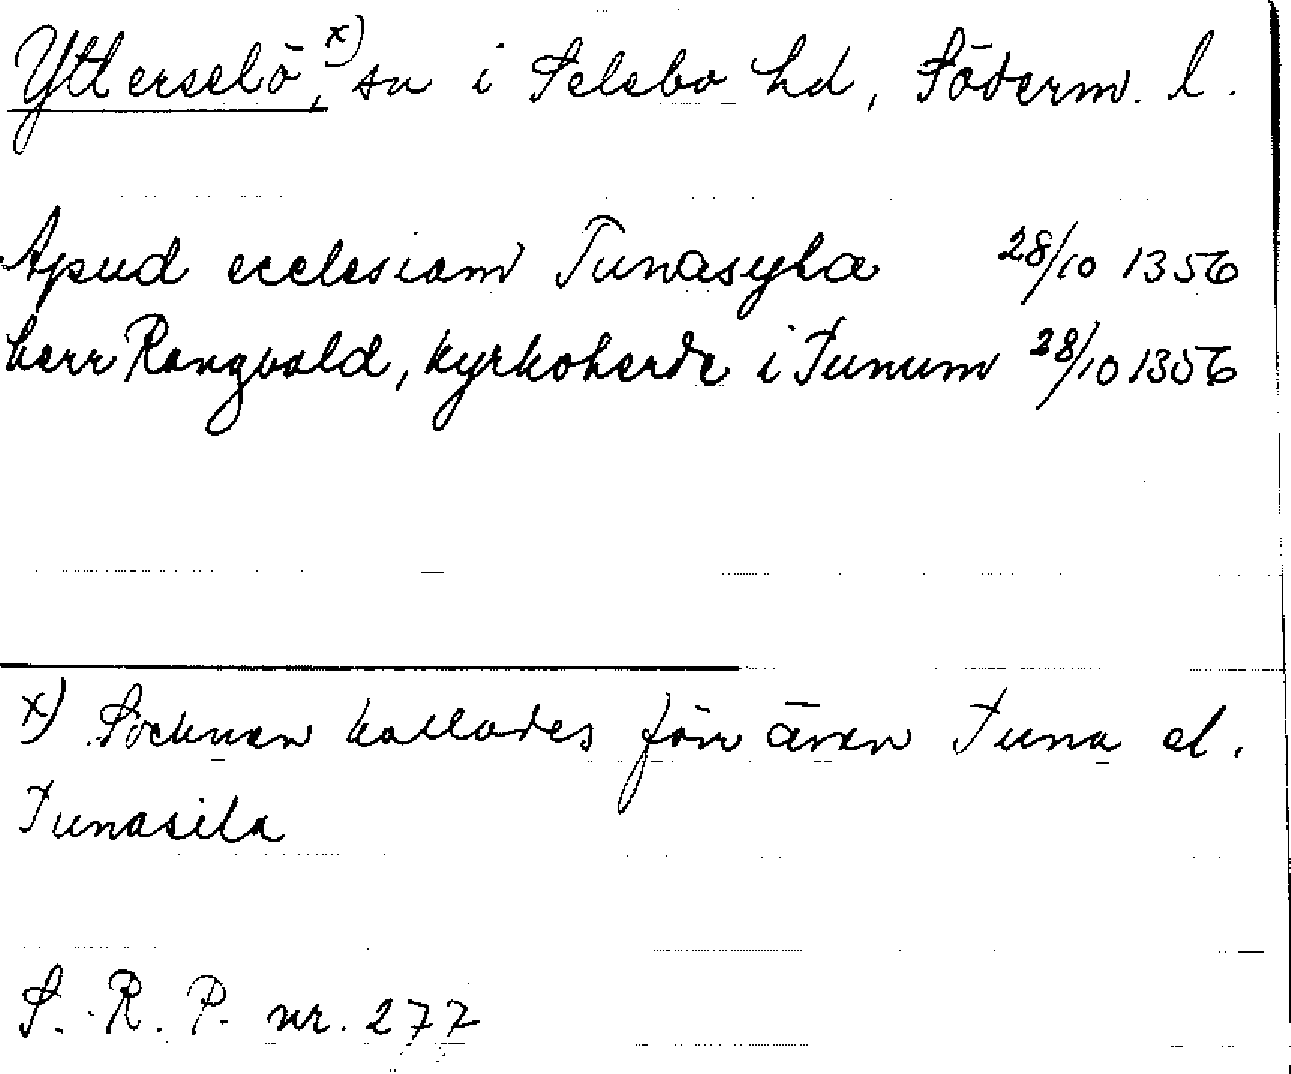 Ytterselö,x) sn i Selebo hd, Söderm. l.
Apud ecclesiam Tunasyla 28/10 1356
herr Rangvald, kyrkoherde i Tunum 28/10 1356
x) Socknen kallades förr även Tuna el.
Tunasila
S. R. P. nr. 277